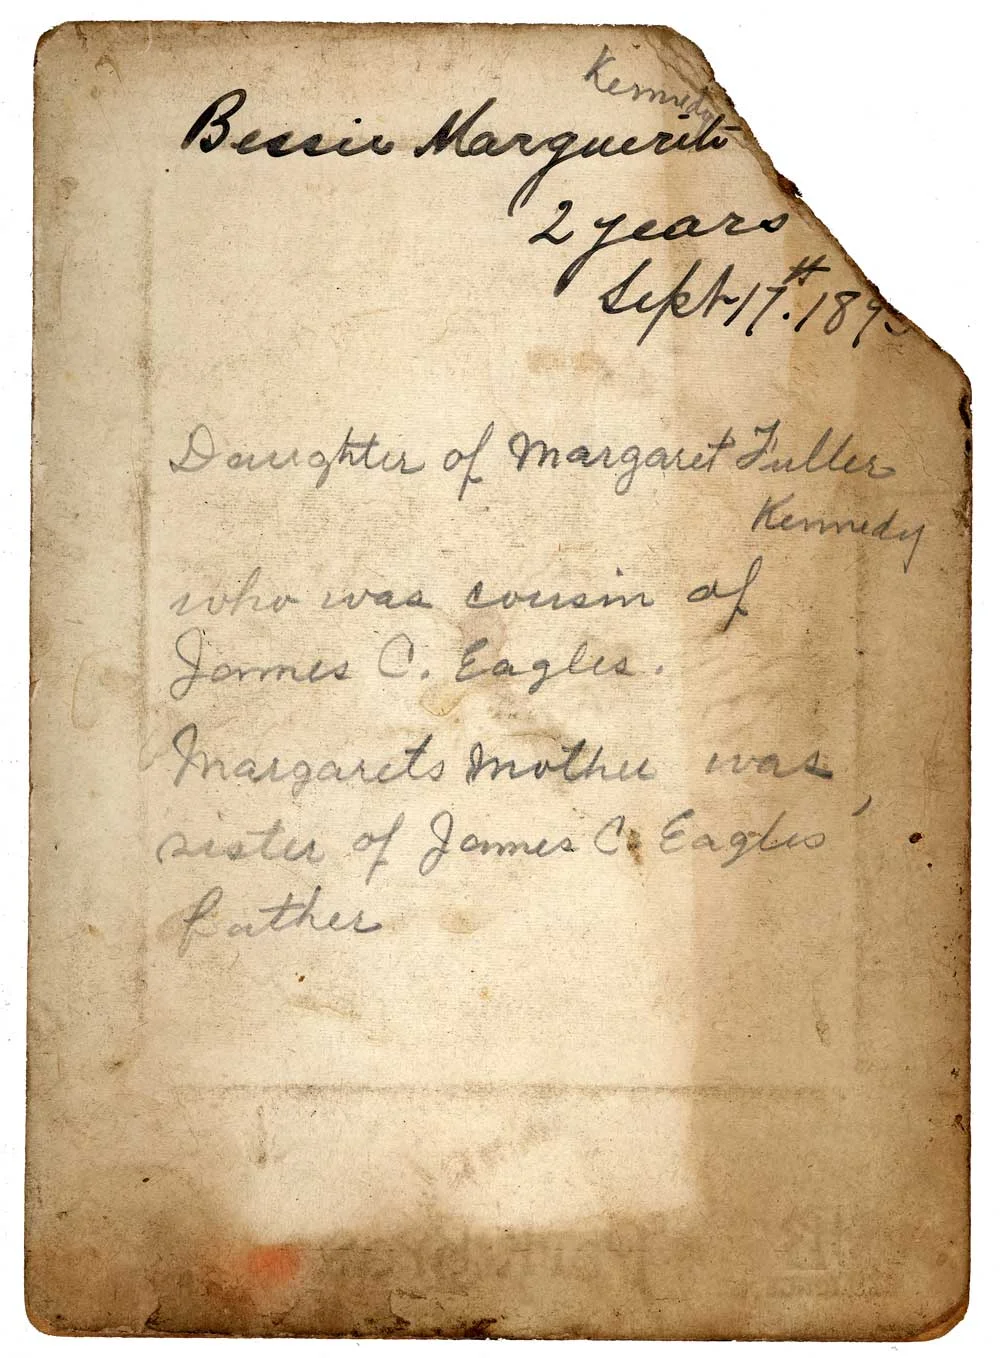 Kennedy
Bessie Marguerite
2 years
Sept 17th. 1893
Daughter of Margaret Fuller
Kennedy
who was cousin of
James C. Eagles.
Margarets Mother was
sister of James C. Eagles'
father